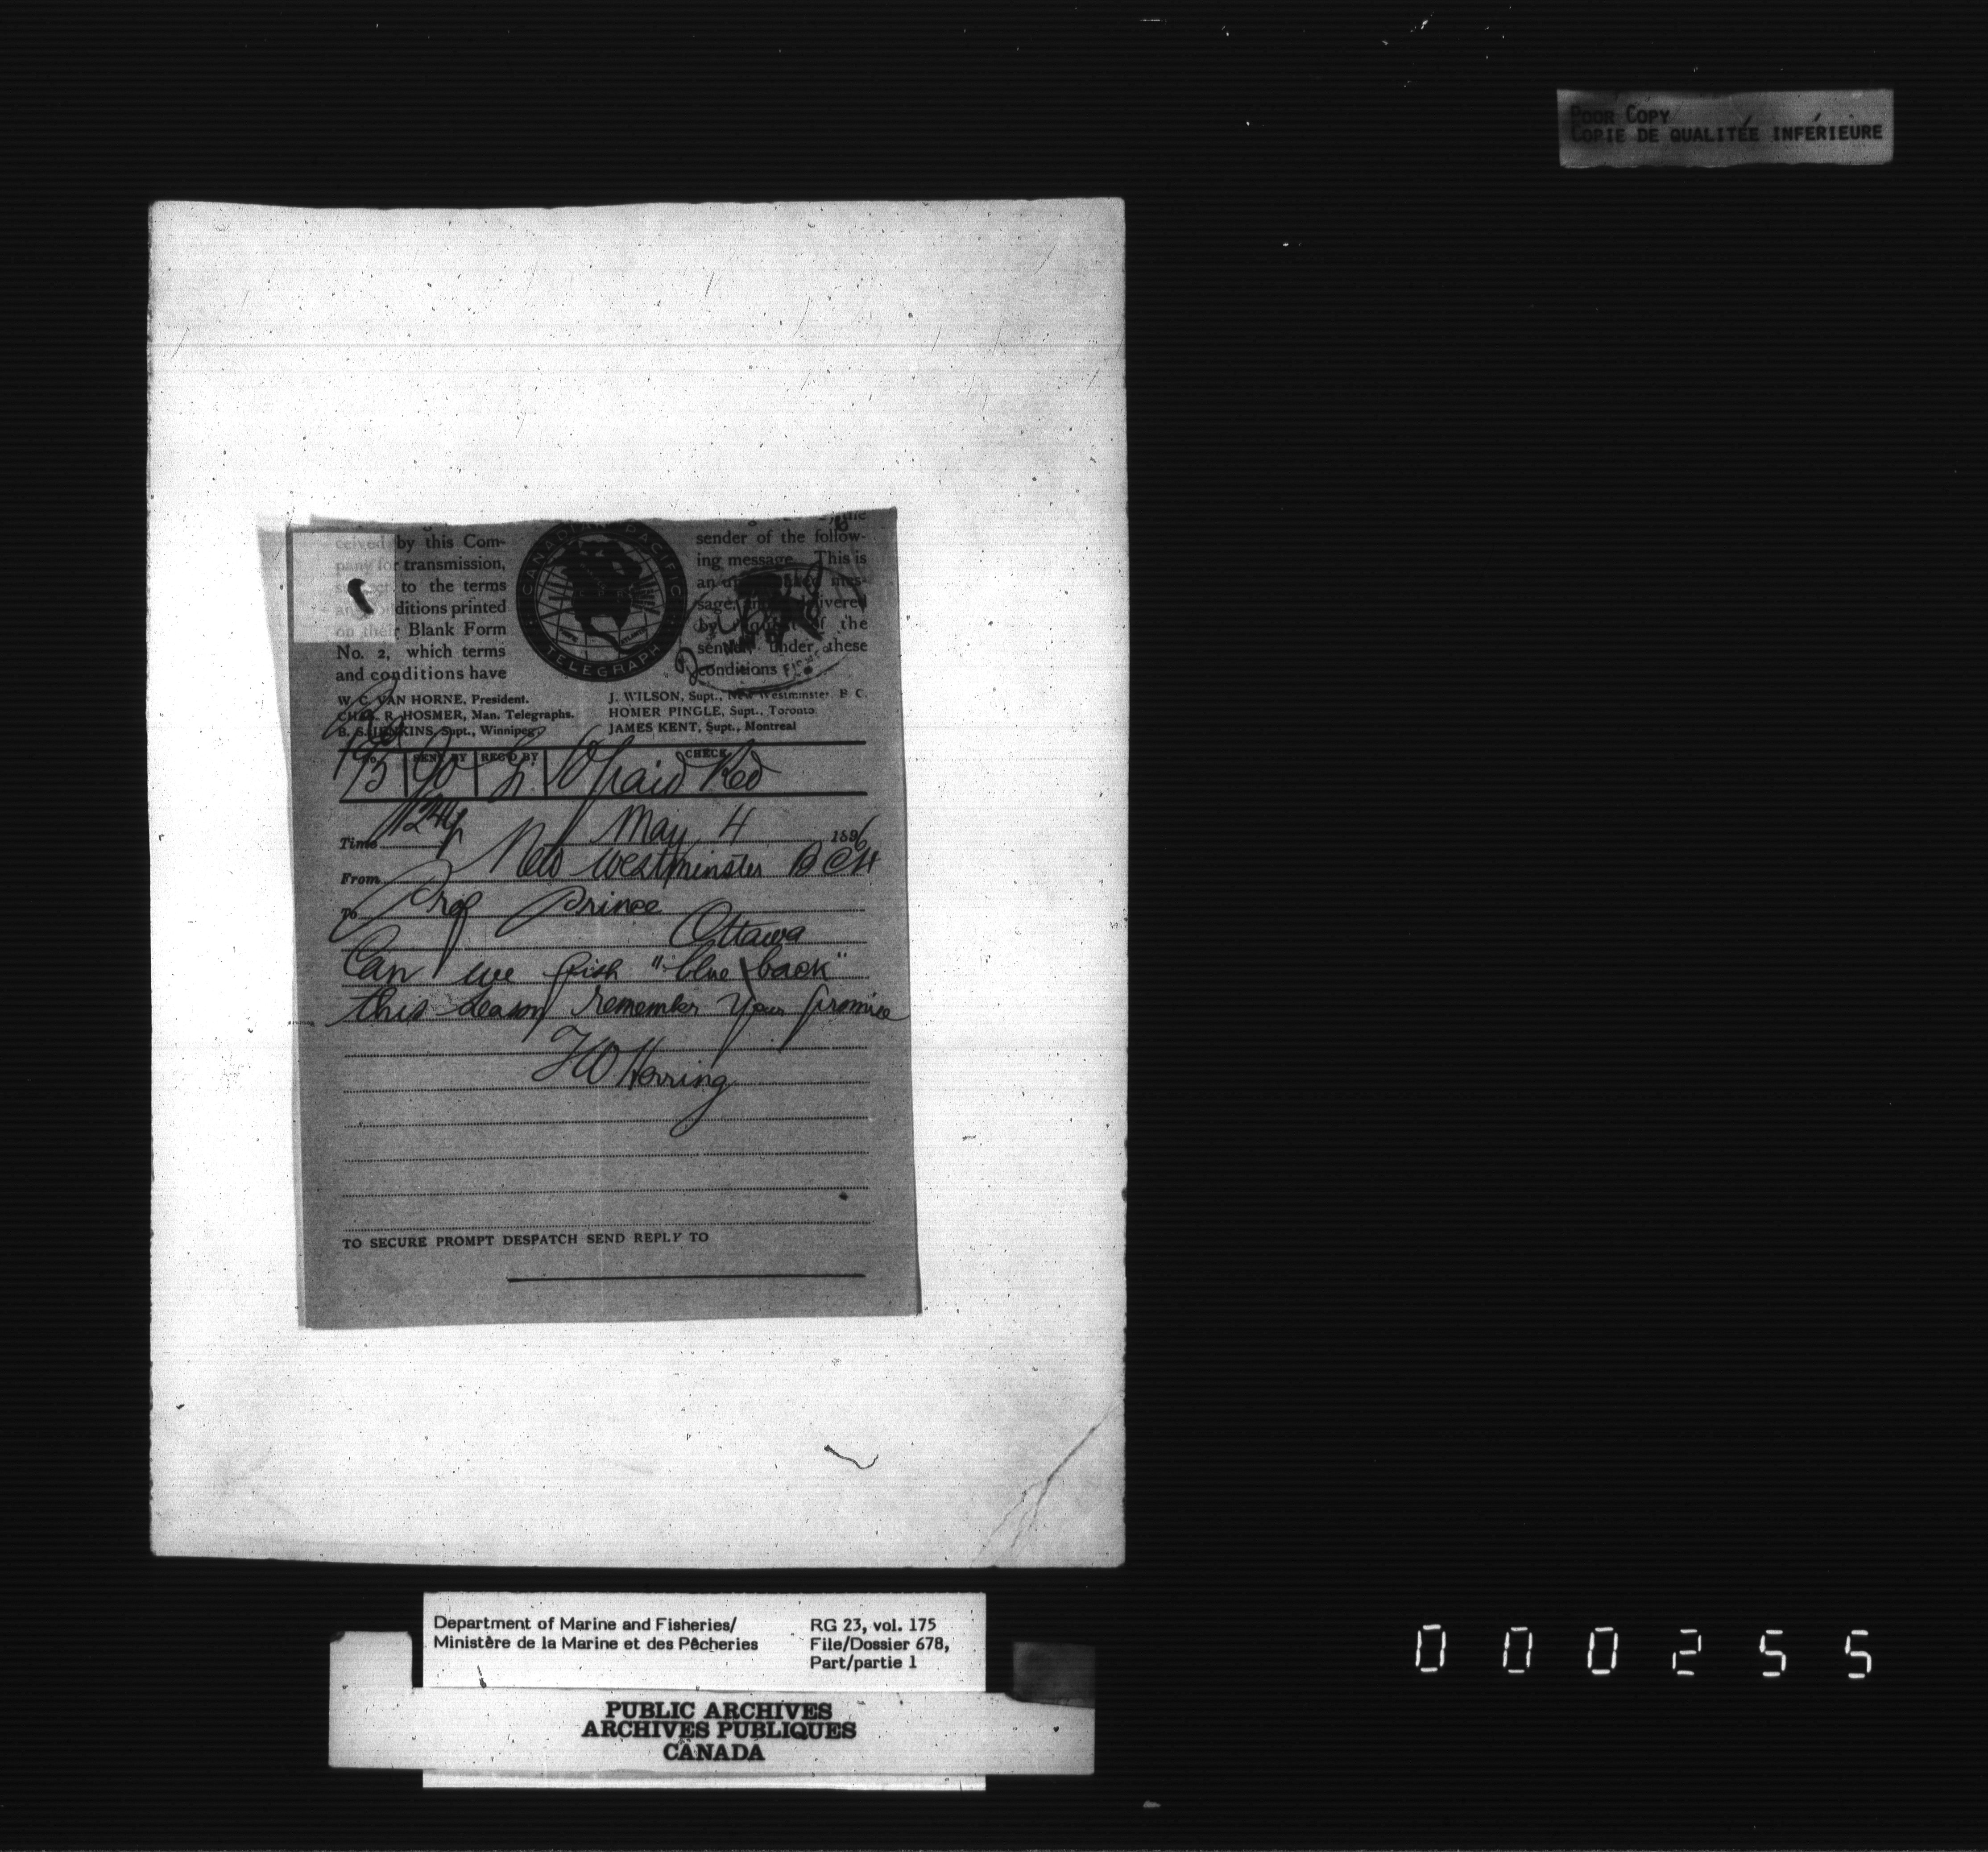 POOR COPY
COPIE DE QUALITÉE INFÉRIEURE
ceived by this Com-
pany for transmission,
subject to the terms
and conditions printed
on their Blank Form
No. 2, which terms
and conditions have
CANADIAN PACIFIC
TELEGRAPH
the
sender of the follow-
ing message. This is
an mes-
sage, delivered
by request of the
sender under these
conditions
W. C. VAN HORNE, President.
CHAS. R. HOSMER, Man. Telegraphs.
B. S. JENKINS, Supt., Winnipeg.
J. WILSON, Supt., New Westminster, B. C.
HOMER PINGLE, Supt., Toronto
JAMES KENT, Supt., Montreal
No. SENT BY REC'D BY CHECK
10 paid
May 4 1896
Time
From New Westminster BC
To Prof Prince
Ottawa
Can we fish "blue back"
this season remember your promise
Herring
TO SECURE PROMPT DESPATCH SEND REPLY TO
Department of Marine and Fisheries/
Ministère de la Marine et des Pêcheries
RG 23, vol. 175
File/Dossier 678,
Part/partie 1
PUBLIC ARCHIVES
ARCHIVES PUBLIQUES
CANADA
000255